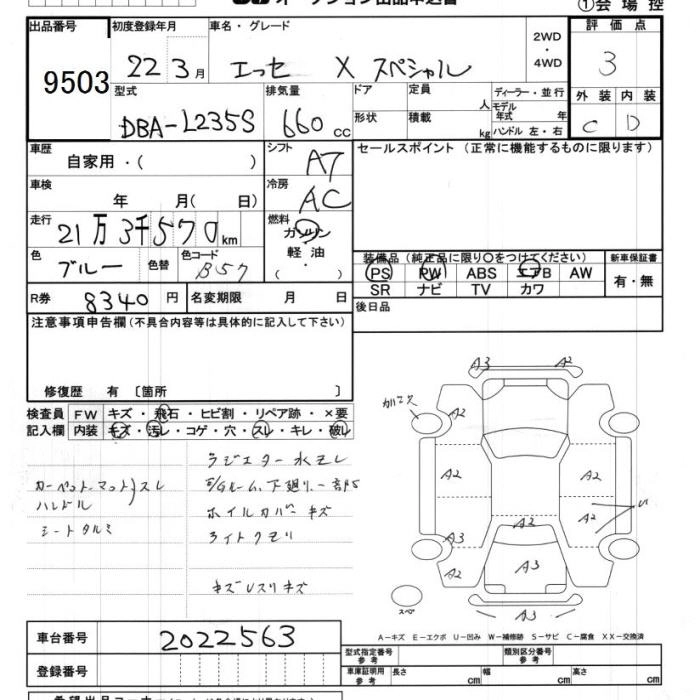 ①会 場 控
出品番号 初度登録年月 車名・グレード 2WD・4WD 評 価 点
9503 22 3月 エッセ X スペシャル 3
型式 排気量 ドア 定員 人 ディーラー・並行 外 装 内 装
DBA-L235S 660 cc 形状 積載 kg モデル年式 年 ハンドル 左・右 C D
車歴 シフト セールスポイント (正常に機能するものに限ります)
自家用・( ) A7
車検 冷房
年 月( 日) AC
走行 燃料
21万3千570km ガソリン
色 色替 色コード 軽 油
ブルー B57 ・( )
装備品 (純正品に限り○をつけてください) 新車保証書
PS PW ABS エアB AW 有・無
SR ナビ TV カワ
R券 8340 円 名変期限 月 日 後日品
注意事項申告欄(不具合内容等は具体的に記入して下さい)
修復歴 有 〔箇所 〕
検査員 FW キズ・飛石・ヒビ割・リペア跡・×要
記入欄 内装 キズ・汚レ・コゲ・穴・スレ・キレ・破レ
ラジエター水モレ
カーペット、マット、スレ
ハンドル ホイルカバー キズ
シートタルミ ライトクモリ
A3 A2
A2
A2 A2
A2
A3 A2
A2 A3
スペア A3
A-キズ E-エクボ U-凹み W-補修跡 S-サビ C-腐食 XX-交換済
車台番号 2022563
型式指定番号 参 考 類別区分番号 参 考
登録番号 車庫証明用 参 考 長さ cm 幅 cm 高さ cm